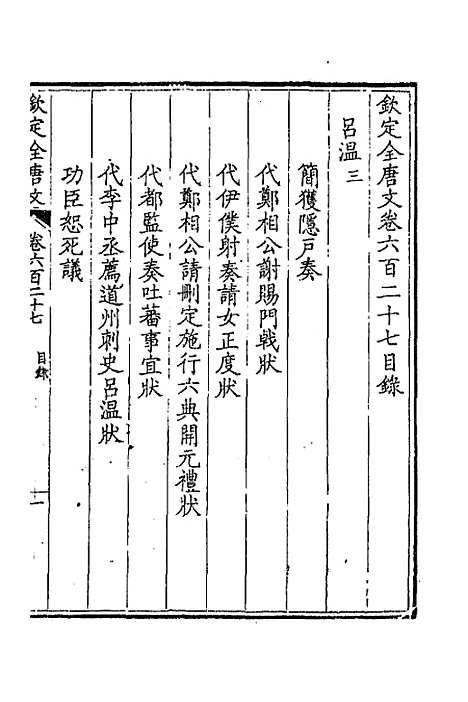 欽定全唐文卷六百二十七目錄
呂溫三
簡獲隱戸奏
代鄭相公謝賜門戟狀
代伊僕射奏請女正度狀
代鄭相公請刪定施行六典開元禮狀
代都監使奏吐蕃事宜狀
代李中丞薦道州刺史呂溫狀
功臣恕死議
欽定全唐文 卷六百二十七 目錄 一